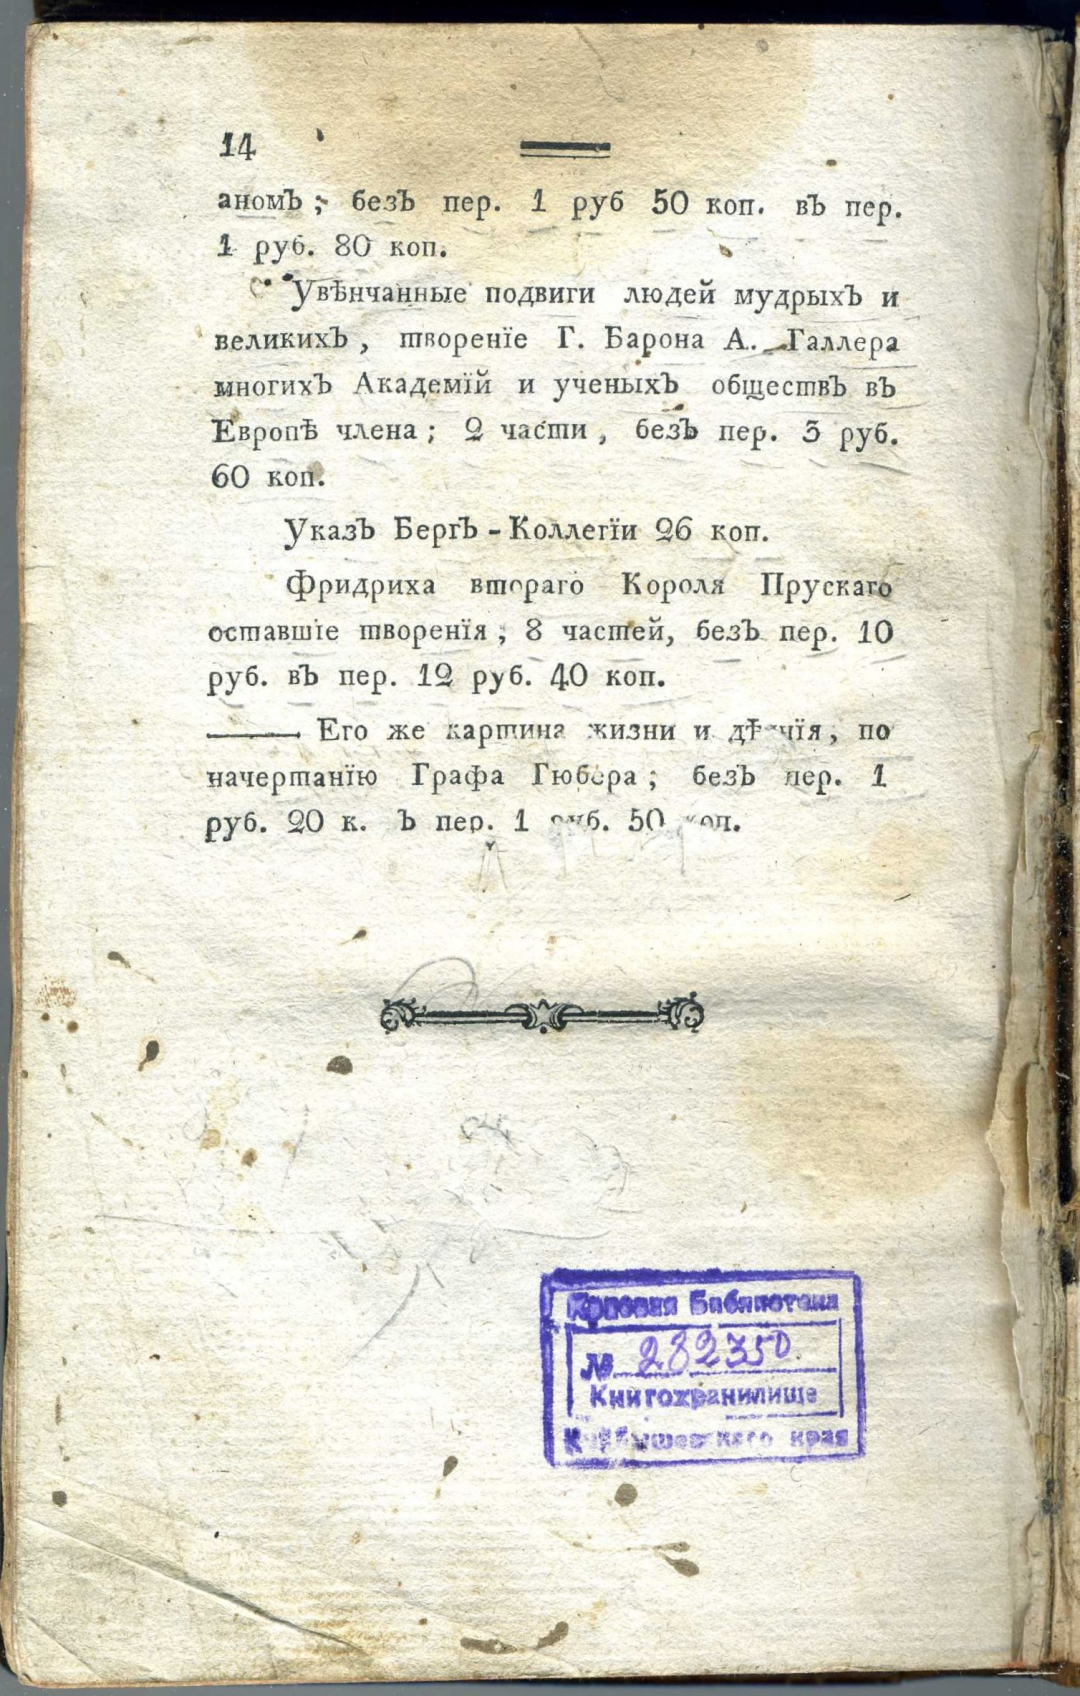 14
аномъ; безъ пер. 1 руб 50 коп. въ пер.
1 руб. 80 коп.
Увѣнчанные подвиги людей мудрыхъ и
великихъ, творенїе Г. Барона А. Галлера
многихъ Академїй и ученыхъ обществъ въ
Европѣ члена; 2 части, безъ пер. 3 руб.
60 коп.
Указъ Бергъ-Коллегїи 26 коп.
Фридриха втораго Короля Прускаго
оставшїе творенїя; 8 частей, безъ пер. 10
руб. въ пер. 12 руб. 40 коп.
—— Его же картина жизни и дѣянїя, по
начертанїю Графа Гюбера; безъ пер. 1
руб. 20 к. ъ пер. 1 руб. 50 коп.
Краевая Библиотека
№ 282350
Книгохранилище
Куйбышевского края